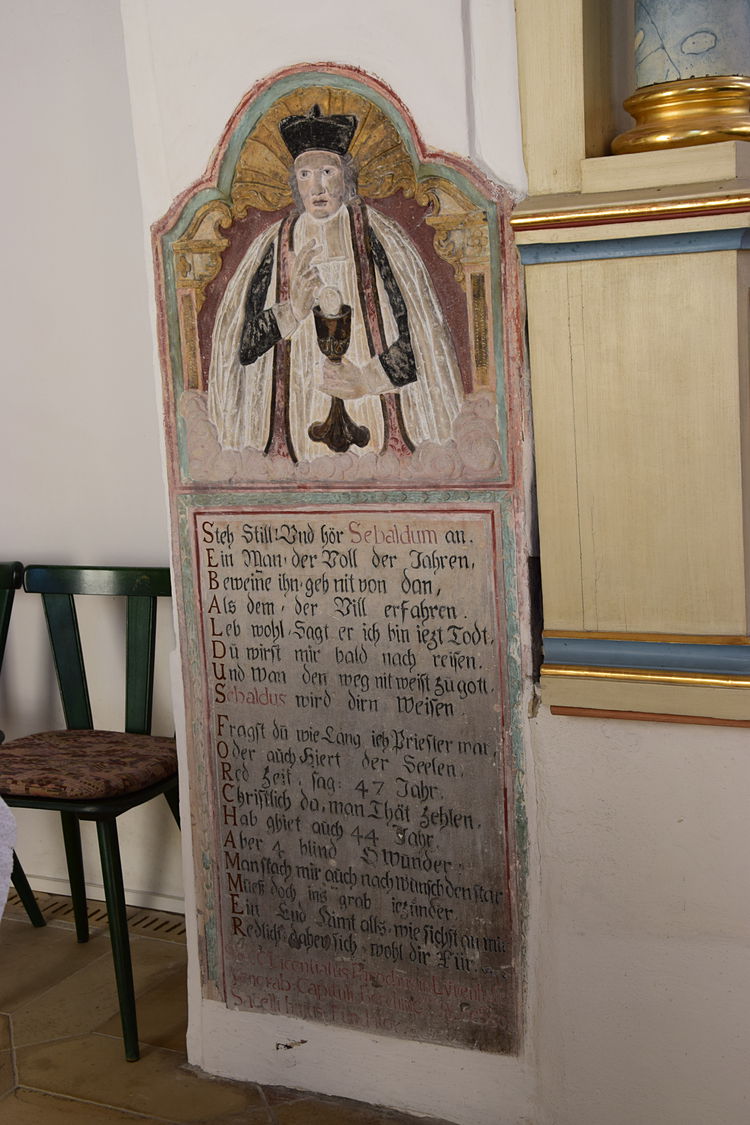 Steh Still! Und hör Sebaldum an.
Ein Man. der Voll der Jahren,
Beweine ihn. geh nit von dan,
Als dem, der Vill erfahren.
Leb wohl. Sagt er ich bin iezt Todt.
Du wirst mir bald nach reisen.
Und wan den weg nit weist zu gott.
Sebaldus wird dirn Weisen
Fragst du wie Lang ich Priester war
Oder auch Hiert der Seelen.
Red Zeit, sag: 47 Jahr.
Christlich da, man Thät zehlen.
Hab ghiet auch 44 Jahr,
Aber 4 blind O Wunder.
Man stach mir auch nach wunsch den star
Mueß doch ins grab iezunder.
Ein End nimt alls, wie sichst an mir
Redlich, daher sich, wohl dir Für.
Licentiatus
Capituli
Sacelli